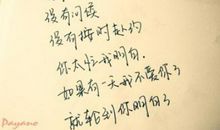 没有问候
没有按时赴约
你太忙我明白.
如果有一天我不爱你了
就轮到你明白了
Dayano